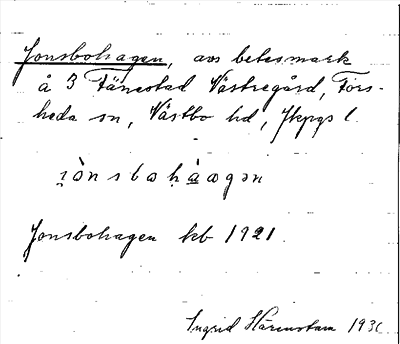 Jonsbohagen, avs betesmark
å 3 Tänestad Västregård, Fors-
heda sn, Västbo hd, Jkpgs l.
Jonsbohagen kb 1921.
Ingrid Härenstam 193